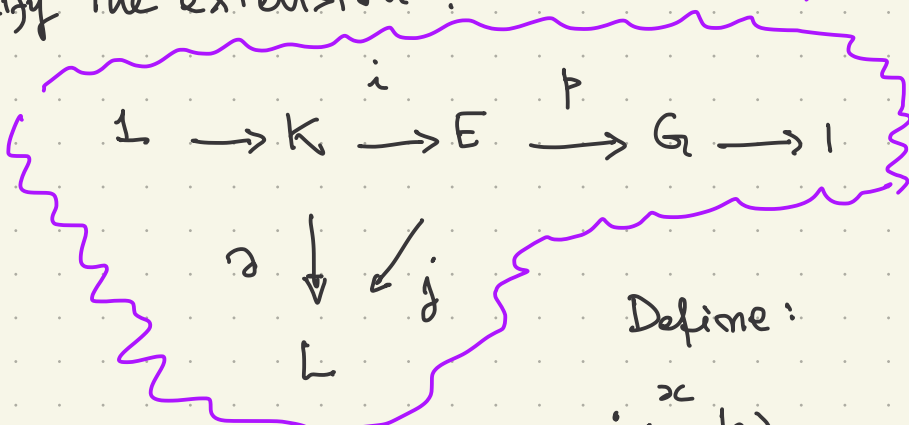 the extension :
i p
1 → K → E → G → 1
∂ ↓ ↙ j
L
Define :
x